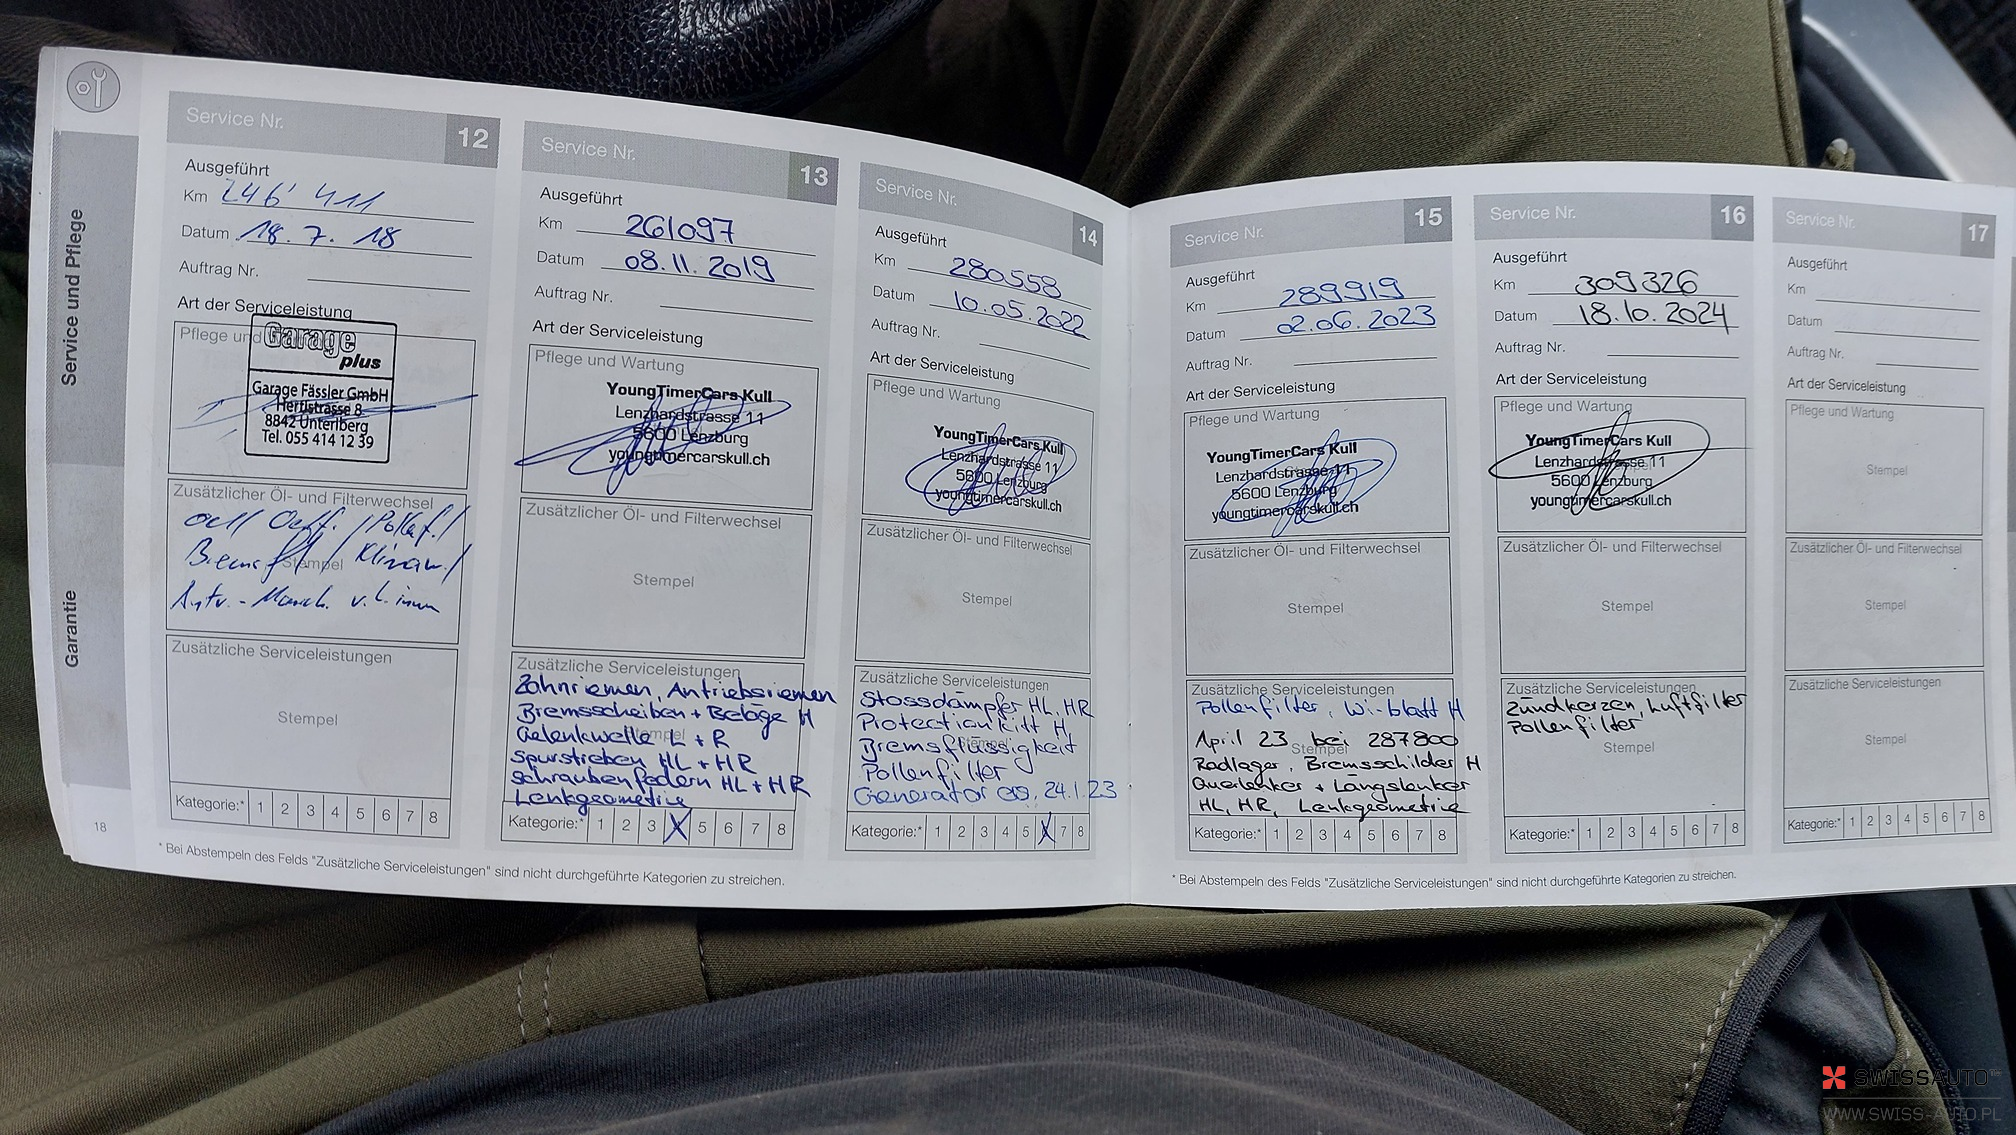 Service und Pflege
Garantie
18
Service Nr. 12
Ausgeführt
Km 246'411
Datum 18.7.18
Auftrag Nr.
Art der Serviceleistung
Pflege und
Garage
plus
Garage Fässler GmbH
Herflstrasse 8
8842 Unteriberg
Tel. 055 414 12 39
Zusätzlicher Öl- und Filterwechsel
Stempel
Zusätzliche Serviceleistungen
Stempel
Kategorie:* 1 2 3 4 5 6 7 8
Service Nr. 13
Ausgeführt
Km 261097
Datum 08.11.2019
Auftrag Nr.
Art der Serviceleistung
Pflege und Wartung
YoungTimerCars Kull
Lenzhardstrasse 11
5600 Lenzburg
youngtimercarskull.ch
Zusätzlicher Öl- und Filterwechsel
Stempel
Zusätzliche Serviceleistungen
Zahnriemen, Antriebsriemen
Bremsscheiben + Beläge H
Gelenkwelle L + R
Spurstreben HL + HR
Schraubenfedern HL + HR
Lenkgeometrie
Kategorie:* 1 2 3 X 5 6 7 8
Service Nr. 14
Ausgeführt
Km 280558
Datum 10.05.2022
Auftrag Nr.
Art der Serviceleistung
Pflege und Wartung
YoungTimerCars Kull
Lenzhardstrasse 11
5600 Lenzburg
youngtimercarskull.ch
Zusätzlicher Öl- und Filterwechsel
Stempel
Zusätzliche Serviceleistungen
Stossdämpfer HL, HR
Protectionkitt H,
Bremsflüssigkeit
Pollenfilter
Generator 24.1.23
Kategorie:* 1 2 3 4 5 X 7 8
* Bei Abstempeln des Felds "Zusätzliche Serviceleistungen" sind nicht durchgeführte Kategorien zu streichen.
Service Nr. 15
Ausgeführt
Km 289919
Datum 02.06.2023
Auftrag Nr.
Art der Serviceleistung
Pflege und Wartung
YoungTimerCars Kull
Lenzhardstrasse 11
5600 Lenzburg
youngtimercarskull.ch
Zusätzlicher Öl- und Filterwechsel
Stempel
Zusätzliche Serviceleistungen
Pollenfilter, Wi-blatt H
April 23 bei 287800
Stempel
Radlager, Bremsschilder H
Querlenker + Längslenker
HL, HR, Lenkgeometrie
Kategorie:* 1 2 3 4 5 6 7 8
Service Nr. 16
Ausgeführt
Km 309326
Datum 18.10.2024
Auftrag Nr.
Art der Serviceleistung
Pflege und Wartung
YoungTimerCars Kull
Lenzhardstrasse 11
5600 Lenzburg
youngtimercarskull.ch
Zusätzlicher Öl- und Filterwechsel
Stempel
Zusätzliche Serviceleistungen
Zündkerzen, Luftfilter
Pollenfilter
Stempel
Kategorie:* 1 2 3 4 5 6 7 8
Service Nr. 17
Ausgeführt
Km
Datum
Auftrag Nr.
Art der Serviceleistung
Pflege und Wartung
Stempel
Zusätzlicher Öl- und Filterwechsel
Stempel
Zusätzliche Serviceleistungen
Stempel
Kategorie:* 1 2 3 4 5 6 7 8
* Bei Abstempeln des Felds "Zusätzliche Serviceleistungen" sind nicht durchgeführte Kategorien zu streichen.
SWISSAUTO
WWW.SWISS-AUTO.PL